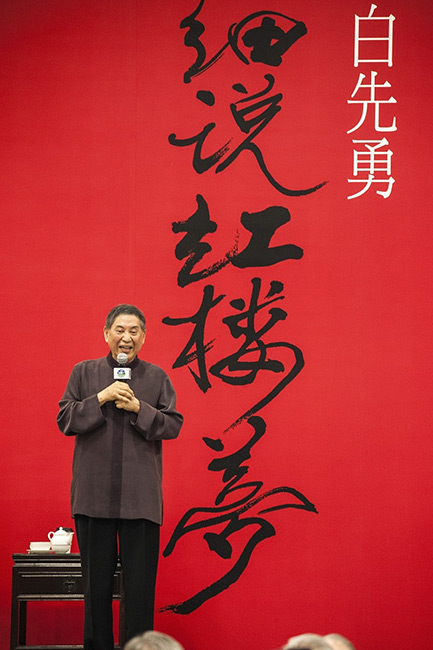 白先勇
细说红楼梦